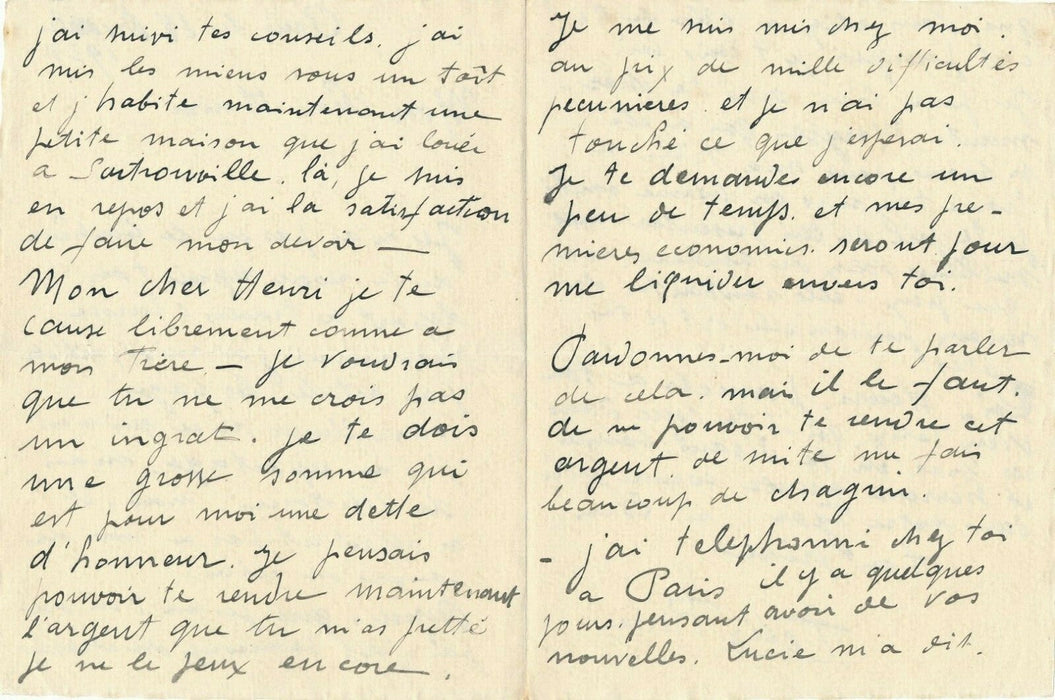 j'ai suivi tes conseils. j'ai
mis les miens sous un toît
et j'habite maintenant une
petite maison que j'ai louée
a Sartrouville. là, je suis
en repos et j'ai la satisfaction
de faire mon devoir —
Mon cher Henri je te
cause librement comme a
mon frère — je voudrais
que tu ne me crois pas
un ingrat. je te dois
une grosse somme qui
est pour moi une dette
d'honneur. Je pensais
pouvoir te rendre maintenant
l'argent que tu m'as prêtté
je ne le peux encore.
Je me suis mis chez moi.
au prix de mille difficultés
pecunieres. et je n'ai pas
touché ce que j'esperai.
Je te demandes encore un
peu de temps. et mes pre-
mieres economies. seront pour
me liquider envers toi.
Pardonnes-moi de te parler
de cela. mais il le faut.
de ne pouvoir te rendre cet
argent. de suite me fais
beaucoup de chagrin.
- j'ai telephonné chez toi
a Paris il y a quelques
jours. pensant avoir de vos
nouvelles. Lucie m'a dit.